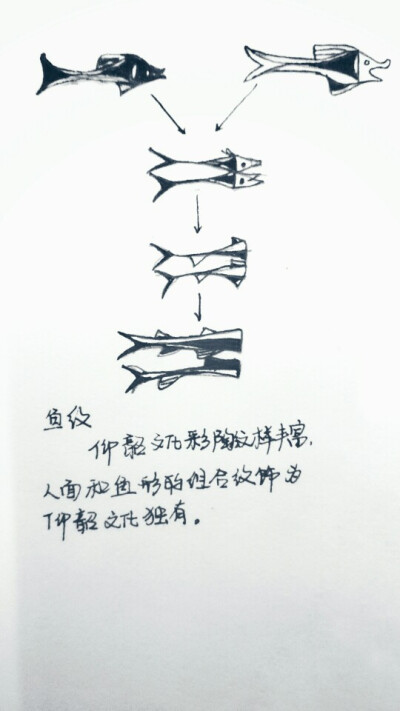 鱼纹
仰韶文化彩陶纹样丰富,
人面和鱼形的组合纹饰为
仰韶文化独有。